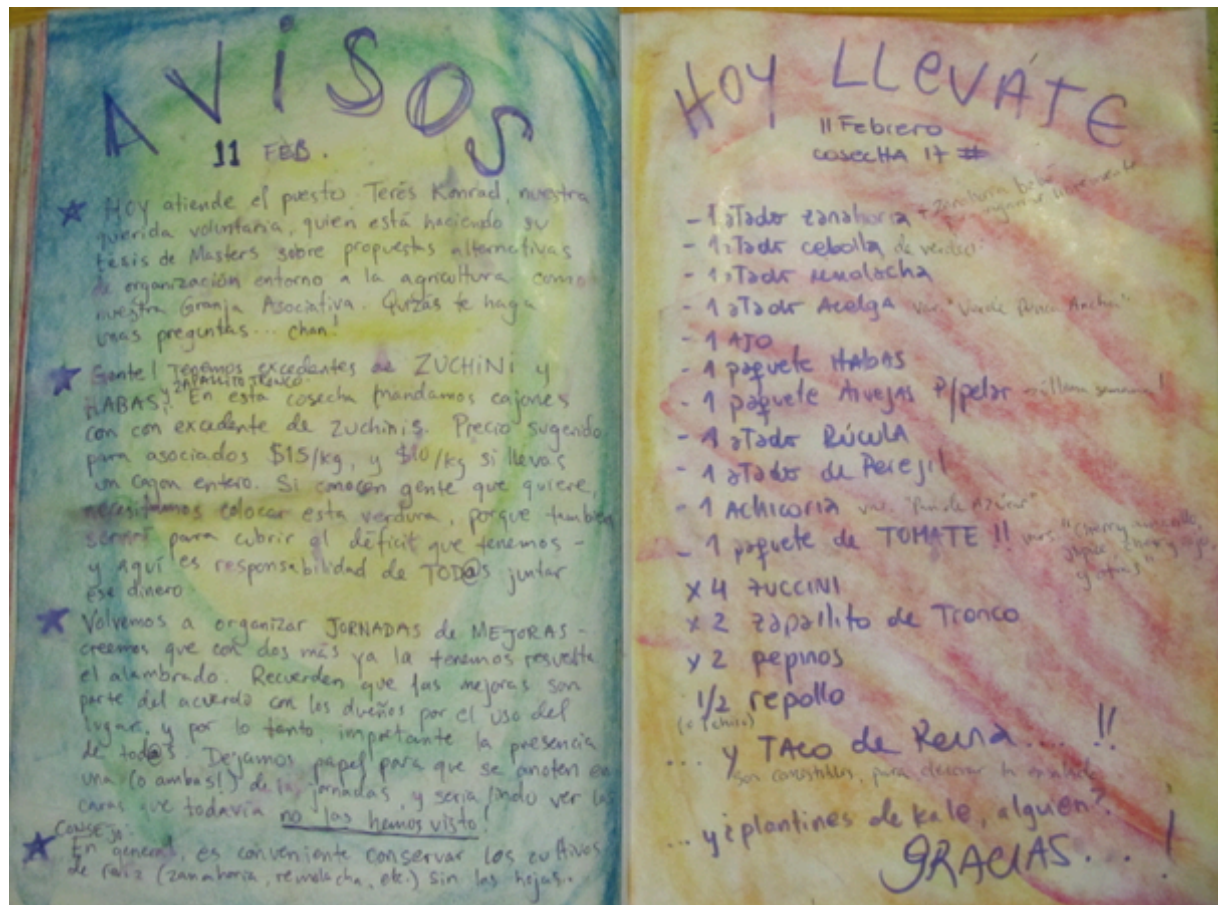 AVISOS
11 FEB.
HOY atiende el puesto Terés Konrad, nuestra
querida voluntaria, quien está haciendo su
tésis de Masters sobre propuestas alternativas
de organización entorno a la agricultura como
nuestra Granja Asociativa. Quizás te haga
unas preguntas... chan!
Gente! Tenemos excedentes de ZUCHINI y
HABAS, y ZAPALLITO TRONCO. En esta cosecha mandamos cajones
con con excedente de zuchinis. Precio sugerido
para asociados $15/kg, y $10/kg si llevas
un cagon entero. Si conocen gente que quiere,
necesitamos colocar esta verdura, porque también
para cubrir el déficit que tenemos -
y aquí es responsabilidad de TOD@S juntar
ese dinero
Volvemos a organizar JORNADAS de MEJORAS -
creemos que con dos más ya la tenemos resuelta
el alambrado. Recuerden que las mejoras son
parte del acuerdo con los dueños por el uso del
lugar, y por lo tanto, importante la presencia
de tod@s. Dejamos papel para que se anoten en
una (o ambas!) de las jornadas, y seria lindo ver las
caras que todavía no las hemos visto!
CONSEJO:
En general, es conveniente conservar los cultivos
de raíz (zanahoria, remolacha, etc.) sin las hojas..
HOY LLEVÁTE
11 Febrero
COSECHA 17 #
- 1 atado zanahoria + zanahoria bebé
- 1 atado cebolla de verdeo
- 1 atado remolacha
- 1 atado Acelga var. "Verde Penca Ancha"
- 1 AJO
- 1 paquete HABAS
- 1 paquete Arvejas P/pelar última semana!
- 1 atado RÚCULA
- 1 atado de Perejil
- 1 ACHICORIA var. "Pan de Azúcar"
- 1 paquete de TOMATE !! vars. "cherry
y otras"
x 4 ZUCCINI
x 2 zapallito de Tronco
x 2 pepinos
1/2 repollo
(o 1 chico)
... y TACO de Reina.... !!
son comestibles, para decorar tu ensalada
... y ¿plantines de kale, alguien?
GRACIAS... !